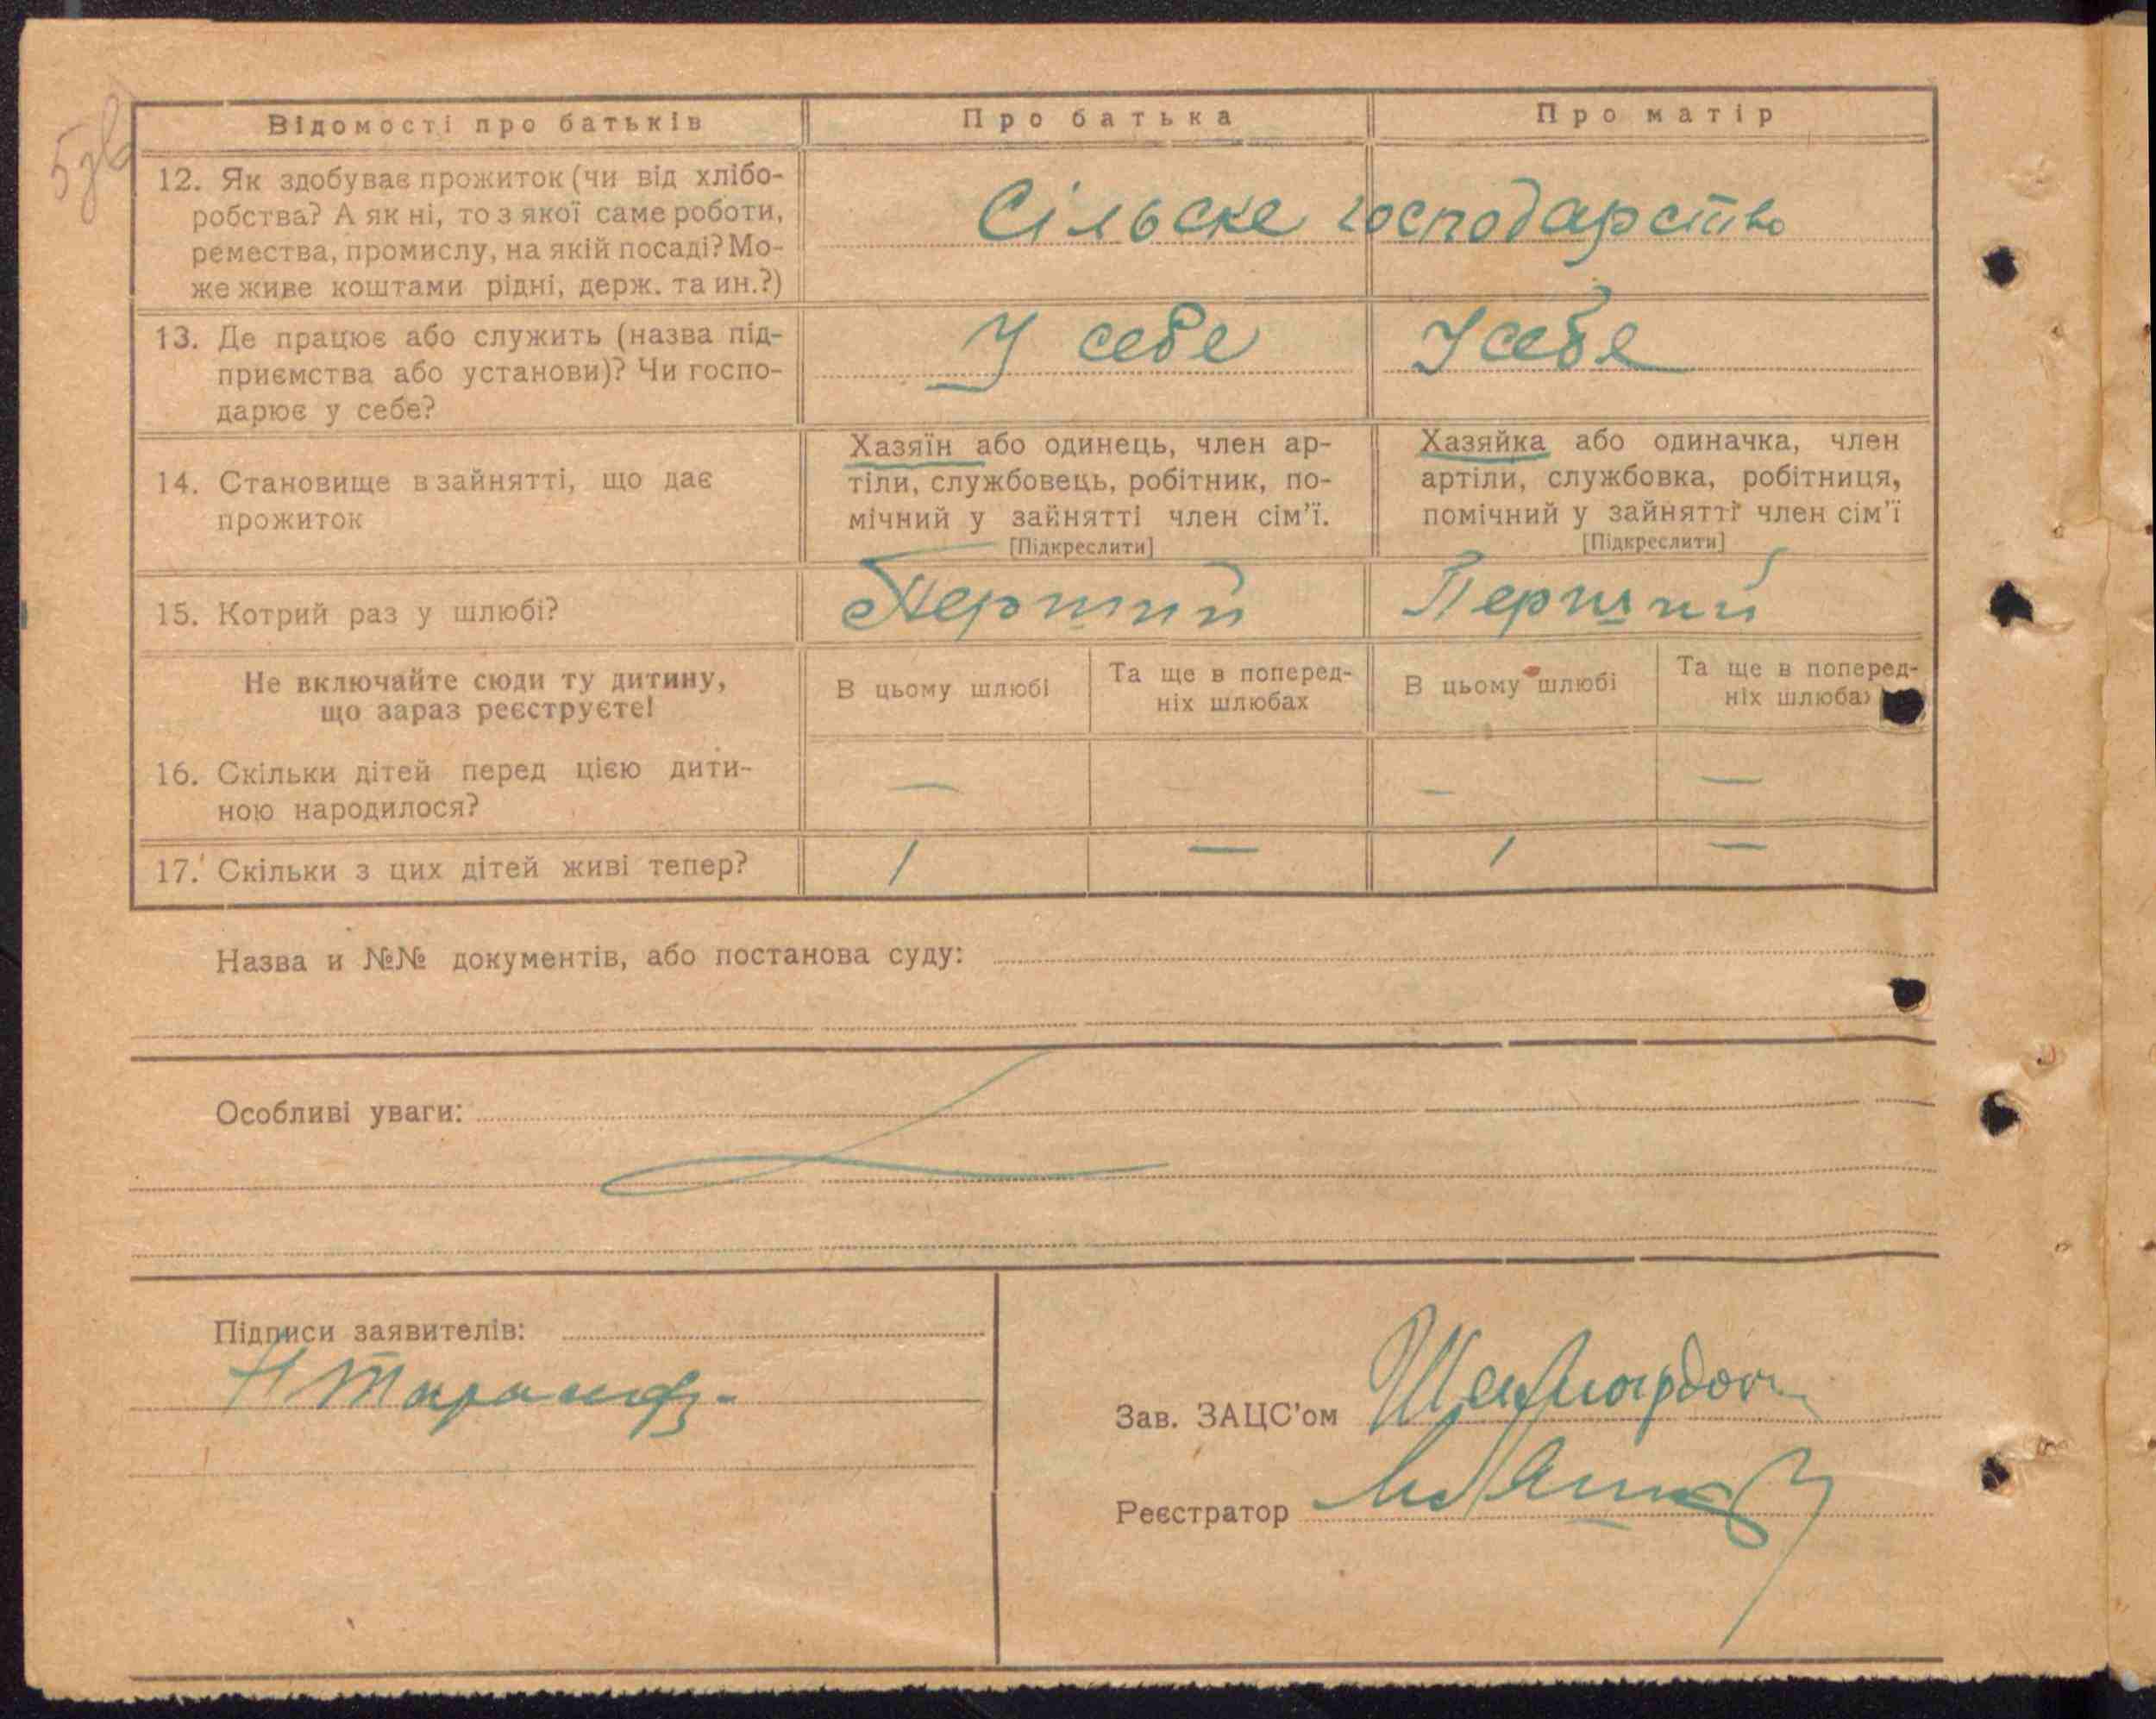 Відомості про батьків
Про батька
Про матір
12. Як здобуває прожиток (чи від хлібо-
робства? А як ні, то з якої саме роботи,
ремества, промислу, на якій посаді? Мо-
же живе коштами рідні, держ. та ин.?)
Сільске господарство
13. Де працює або служить (назва під-
приємства або установи)? Чи госпо-
дарює у себе?
У себе
У себе
14. Становище в зайнятті, що дає
прожиток
Хазяїн або одинець, член ар-
тіли, службовець, робітник, по-
мічний у зайнятті член сім'ї.
[Підкреслити]
Хазяйка або одиначка, член
артіли, службовка, робітниця,
помічний у зайнятті член сім'ї
[Підкреслити]
15. Котрий раз у шлюбі?
Перший
Перший
Не включайте сюди ту дитину,
що зараз реєструєте!
В цьому шлюбі
Та ще в поперед-
ніх шлюбах
В цьому шлюбі
Та ще в поперед-
ніх шлюбах
16. Скільки дітей перед цією дити-
ною народилося?
—
—
—
17. Скільки з цих дітей живі тепер?
1
—
1
—
Назва и №№ документів, або постанова суду:
Особливі уваги:
Підписи заявителів:
Зав. ЗАЦС'ом
Реєстратор